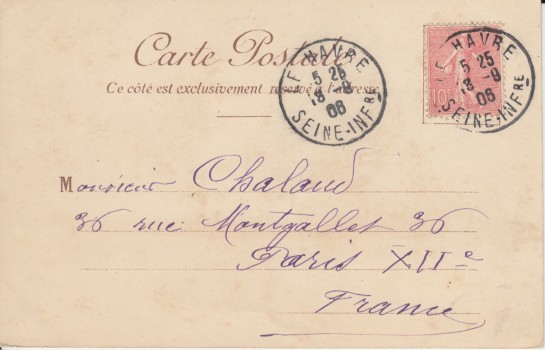 Carte Postale
Ce côté est exclusivement réservé à l'adresse
LE HAVRE
5 25
18 -9
06
SEINE-INFRE
10c
LE HAVRE
5 25
18 -9
06
SEINE-INFRE
Monsieur Chaland
36 rue Montgallet 36
Paris XIIe
France